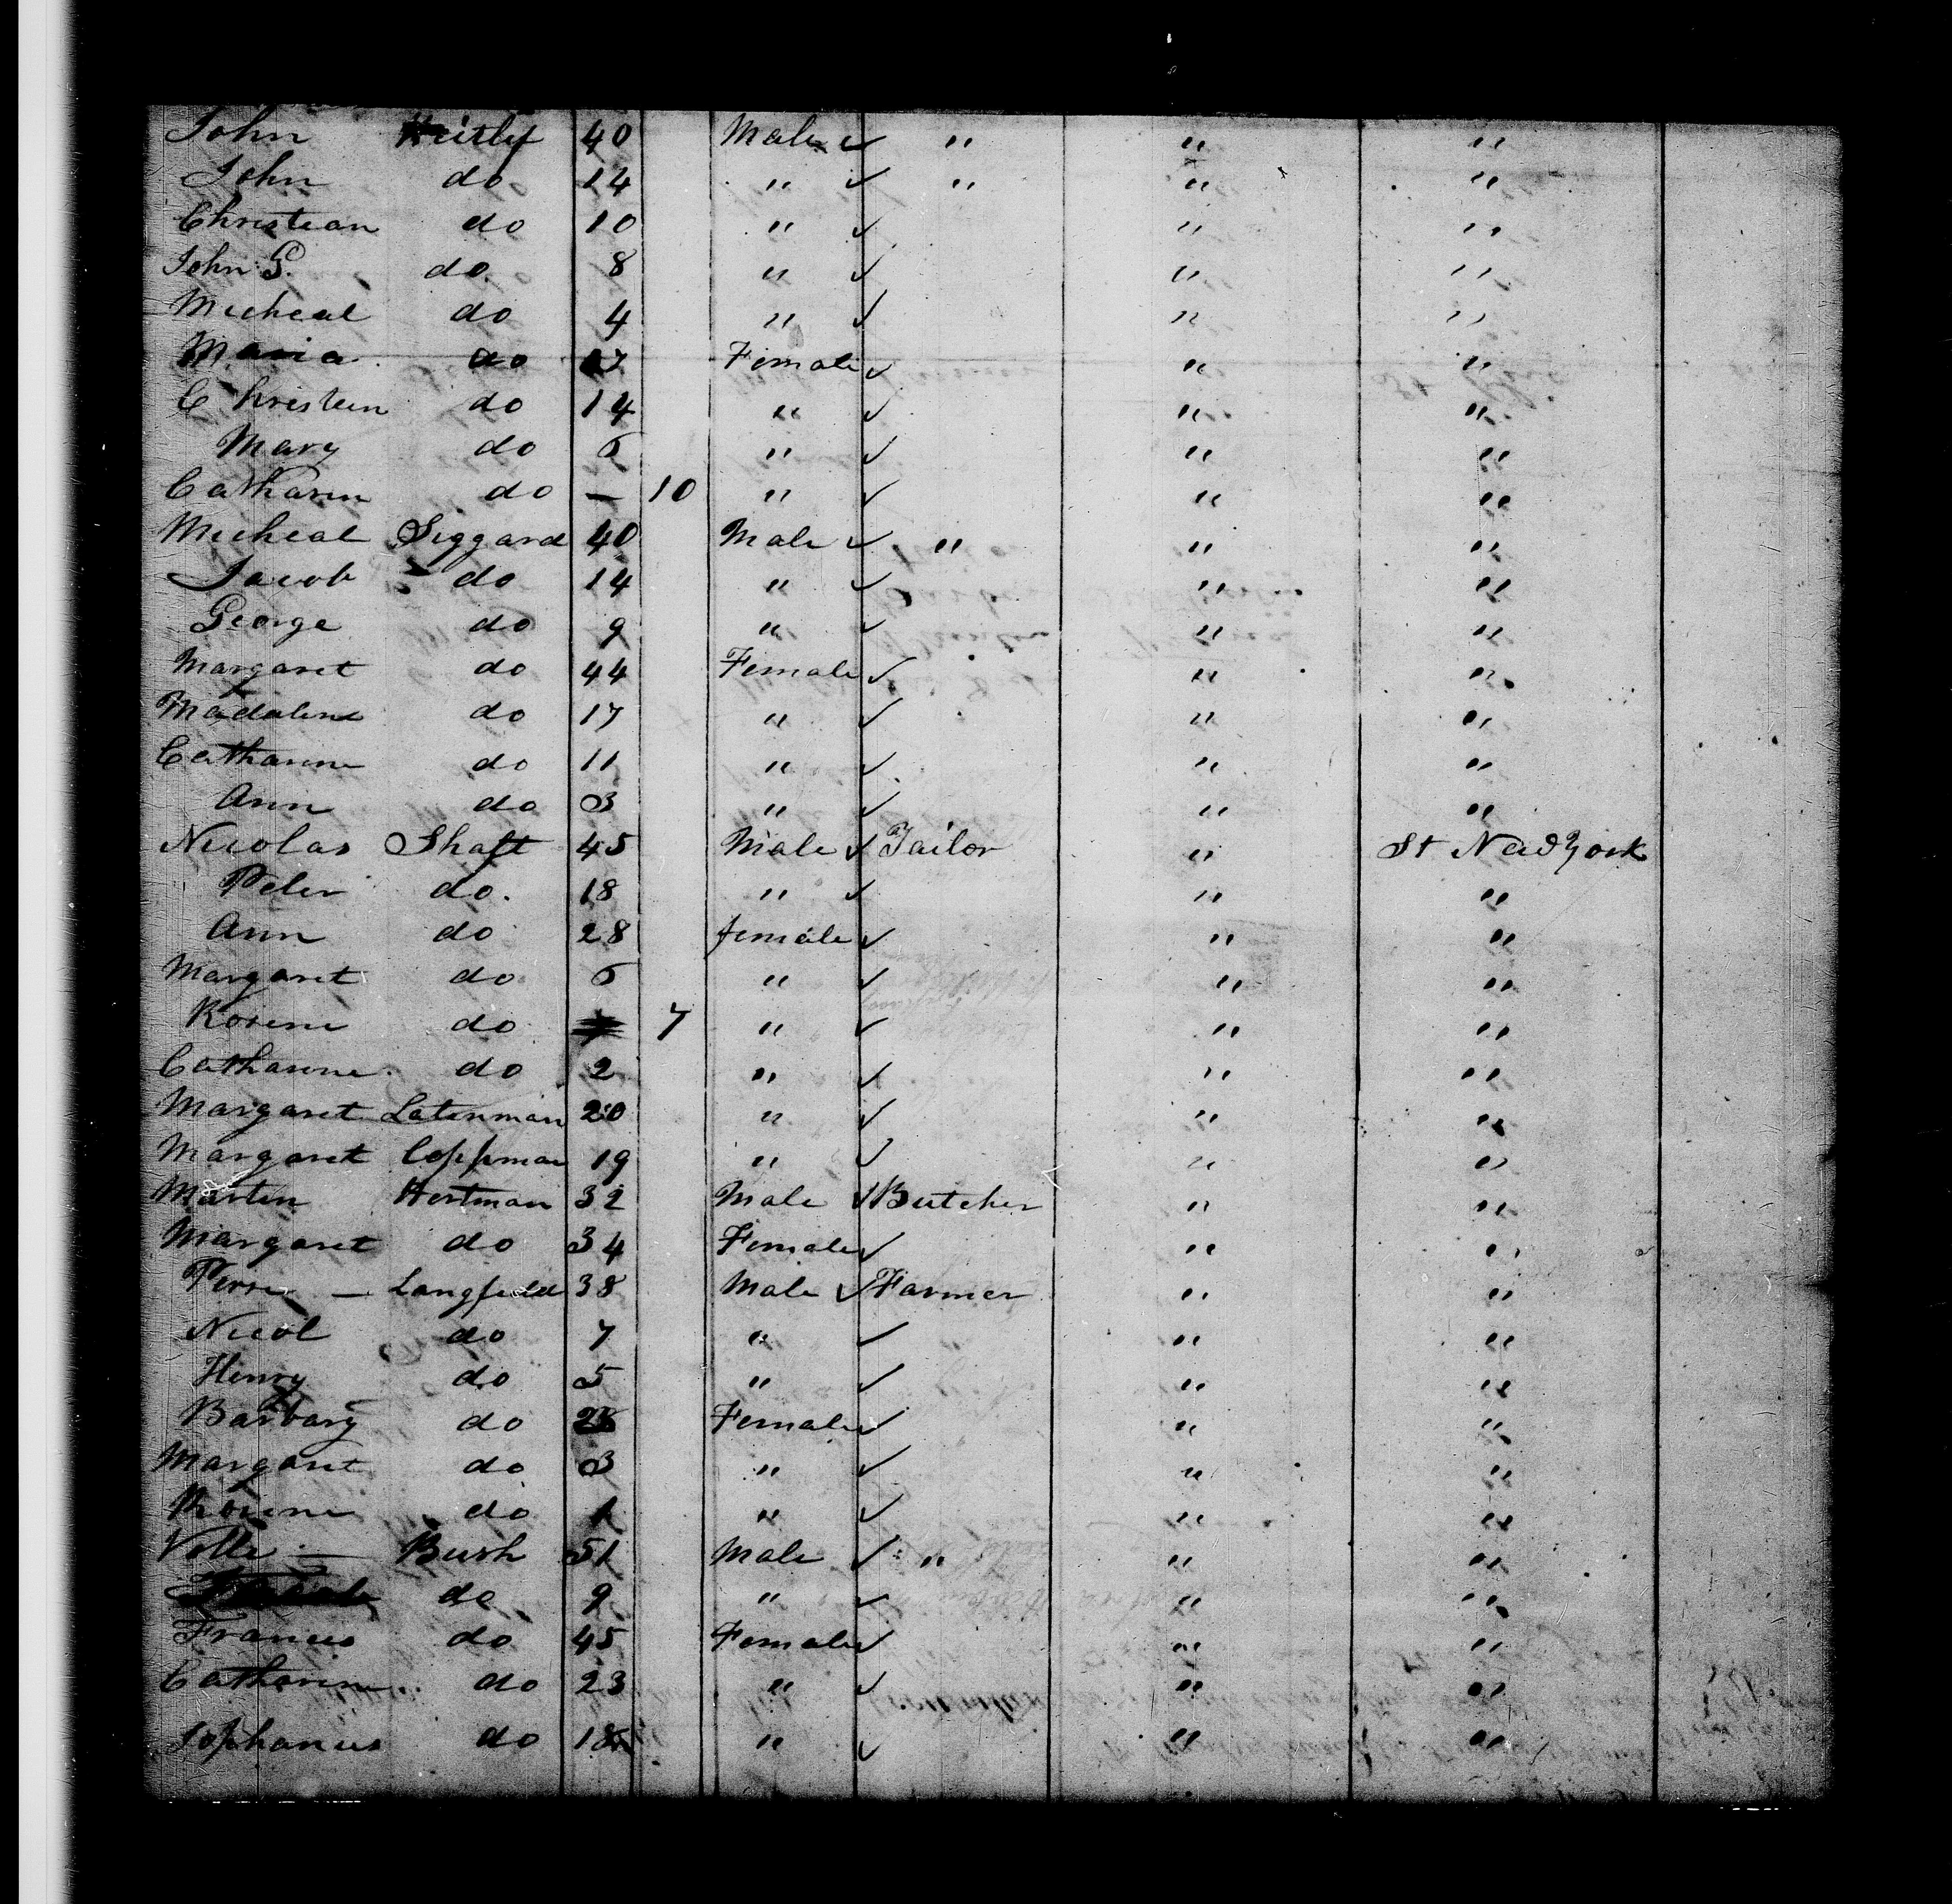 John 40 Male ✓ " " "
John do 14 " ✓ " " "
Christean do 10 " ✓ " "
John G. do 8 " ✓ " "
Micheal do 4 " ✓ " "
Maria do Female ✓ " "
Christein do 14 " ✓ " "
Mary do 6 " ✓ " "
Catharin do — 10 " ✓ " "
Micheal Siggard 40 Male ✓ " " "
Jacob do 14 " ✓ " "
George do 9 " ✓ " "
Margaret do 44 Female ✓ " "
Madaline do 17 " ✓ " "
Catharine do 11 " ✓ " "
Ann do 3 " ✓ " "
Nicolas Shaft 45 Male ✓ Tailor " St New York
Peter do. 18 " ✓ " "
Ann do 28 female ✓ " "
Margaret do 6 " ✓ " "
Rosene do 7 " ✓ " "
Catharine do 2 " ✓ " "
Margaret Latenman 20 " ✓ " "
Margaret Coffman 19 " ✓ " "
Martin Hortman 32 Male ✓ Butcher " "
Margaret do 34 Female ✓ " "
— Langfield 38 Male ✓ Farmer " "
Nicol do 7 " ✓ " "
Henry do 5 " ✓ " "
Barbary do Female ✓ " "
Margaret do 3 " ✓ " "
Rosene do 1 " ✓ " "
— Bush 51 Male ✓ " " "
do 9 " ✓ " "
Frances do 45 Female ✓ " "
Catharin do 23 " ✓ " "
do 18 " ✓ " "